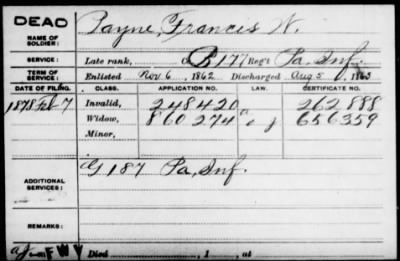 DEAD
NAME OF SOLDIER: Payne, Francis W.
SERVICE: Late rank, B 177 Reg't Pa. Inf.
TERM OF SERVICE: Enlisted Nov. 6, 1862 Discharged Aug 5, 1863
DATE OF FILING. CLASS. APPLICATION NO. LAW. CERTIFICATE NO.
1878 Feb 7 Invalid, 248420 262888
Widow, 860274 656359
Minor,
ADDITIONAL SERVICES: G 187 Pa, Inf.
REMARKS:
FWV Died , 1 , at